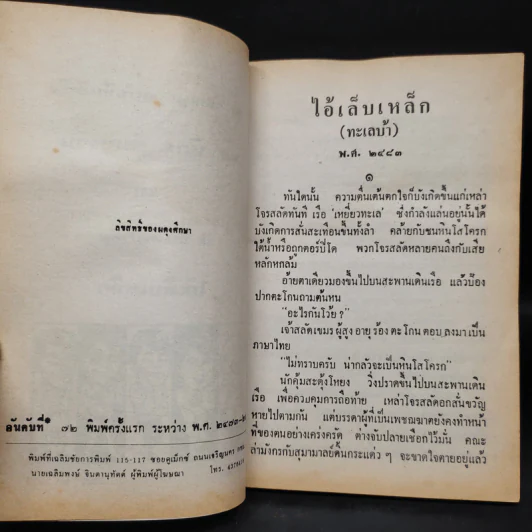 ลิขสิทธิ์ของผดุงศึกษา
อันดับที่ ๗๒ พิมพ์ครั้งแรก ระหว่าง พ.ศ. ๒๔๗๓-
พิมพ์ที่เฉลิมชัยการพิมพ์ 115-117 ซอยคูเม็กซ์ ถนนเจริญนคร
นายเฉลิมพงษ์ จินดานุทัตต์ ผู้พิมพ์ผู้โฆษณา โทร.
ไอ้เล็บเหล็ก
(ทะเลบ้า)
พ.ศ. ๒๔๘๓
๑
ทันใดนั้น ความตื่นเต้นตกใจก็บังเกิดขึ้นแก่เหล่า
โจรสลัดทันที เรือ 'เหยี่ยวทะเล' ซึ่งกำลังแล่นอยู่นั้นได้
บังเกิดการสั่นสะเทือนขึ้นทั้งลำ คล้ายกับชนหินโสโครก
ใต้น้ำหรือถูกตอร์ปิโด พวกโจรสลัดหลายคนถึงกับเสีย
หลักหกล้ม
อ้ายตาเดียวมองขึ้นไปบนสะพานเดินเรือ แล้วป้อง
ปากตะโกนถามต้นหน
"อะไรกันโว้ย ?"
เจ้าสลัดเขมร ผู้สูง อายุ ร้อง ตะโกน ตอบ ลงมา เป็น
ภาษาไทย
"ไม่ทราบครับ น่ากลัวจะเป็นหินโสโครก"
นักคุ้มสะดุ้งโหยง วิ่งปราดขึ้นไปบนสะพานเดิน
เรือ เพื่อควบคุมการถือท้าย เหล่าโจรสลัดอกสั่นขวัญ
หายไปตามกัน แต่บรรดาผู้ที่เป็นเพชฌฆาตยังคงทำหน้า
ที่ของตนอย่างเคร่งครัด ต่างจับปลายเชือกไว้มั่น คณะ
ล่ามังกรกับสุมามาลย์ดิ้นกระแด่ว ๆ จะขาดใจตายอยู่แล้ว